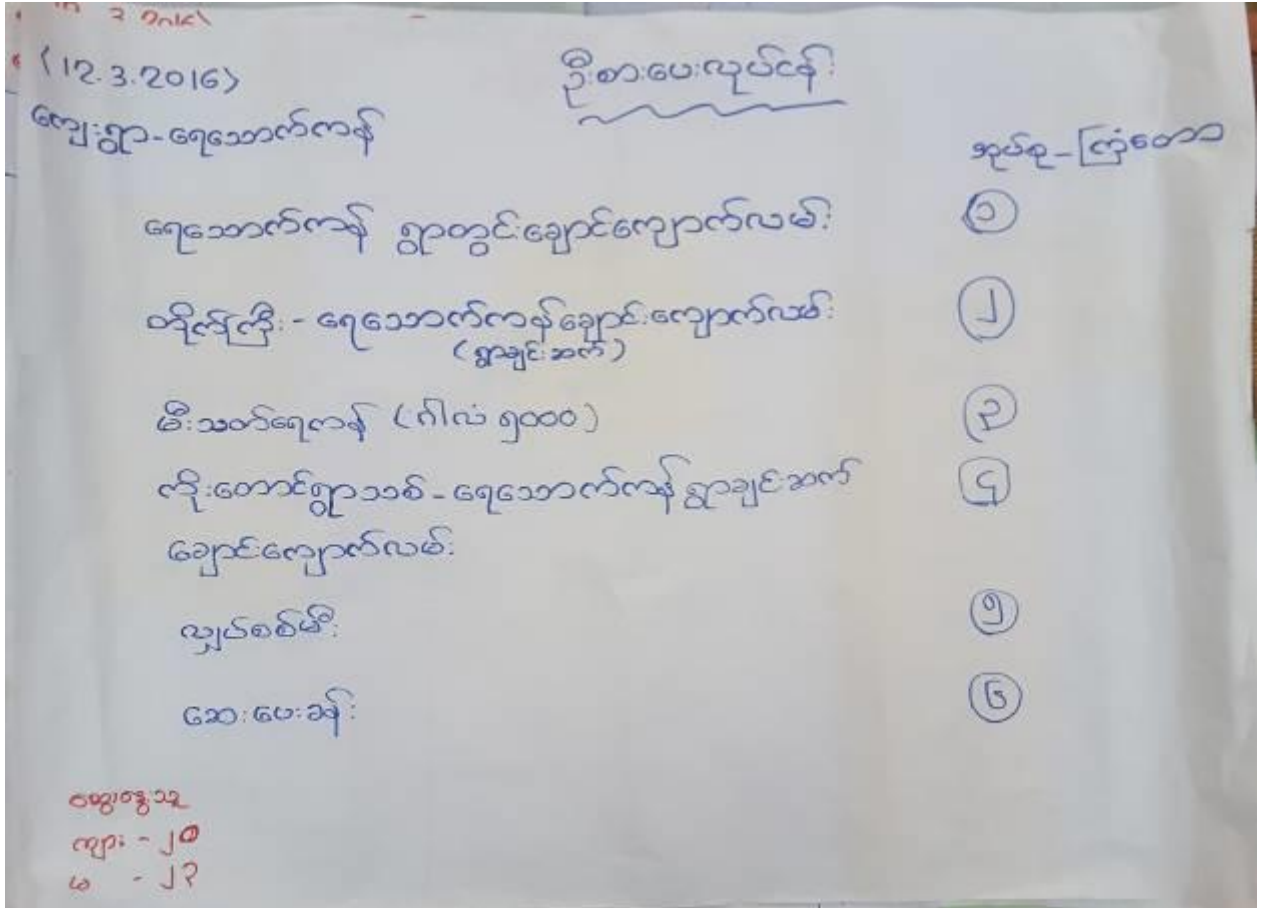 (12.3.2016)
ဦးစားပေးလုပ်ငန်း
ကျေးရွာ-ရေသောက်ကန်
အုပ်စု-ကြံတော
ရေသောက်ကန် ရွာတွင်းချောင်ကျောက်လမ်း ၁
တိုက်ကြီး-ရေသောက်ကန်ချောင်းကျောက်လမ်း ၂
(ရွာချင်းဆက်)
မီးသတ်ရေကန် (ဂါလံ ၅၀၀၀) ၃
ကိုးတောင်ရွာသစ်-ရေသောက်ကန် ရွာချင်းဆက် ၄
ချောင်းကျောက်လမ်း
လျှပ်စစ်မီး ၅
ဆေးပေးခန်း ၆
ဆွေးနွေးသူ
ကျား - ၂၀
မ - ၂၃